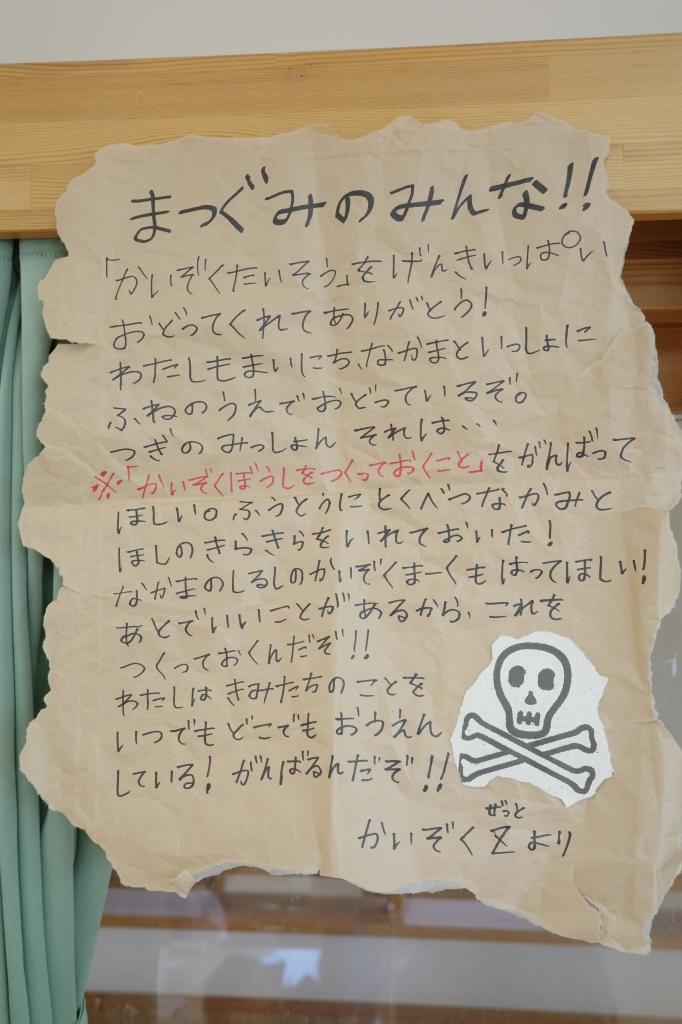 まつぐみのみんな!!
「かいぞくたいそう」をげんきいっぱい
おどってくれてありがとう!
わたしもまいにち、なかまといっしょに
ふねのうえでおどっているぞ。
つぎの みっしょん それは・・・
※「かいぞくぼうしをつくっておくこと」をがんばって
ほしい。ふうとうにとくべつなかみと
ほしのきらきらをいれておいた!
なかまのしるしのかいぞくまーくも はってほしい!
あとでいいことがあるから、これを
つくっておくんだぞ!!
わたしは きみたちの ことを
いつでも どこでも おうえん
している! がんばるんだぞ!!
ぜっと
かいぞく Z より